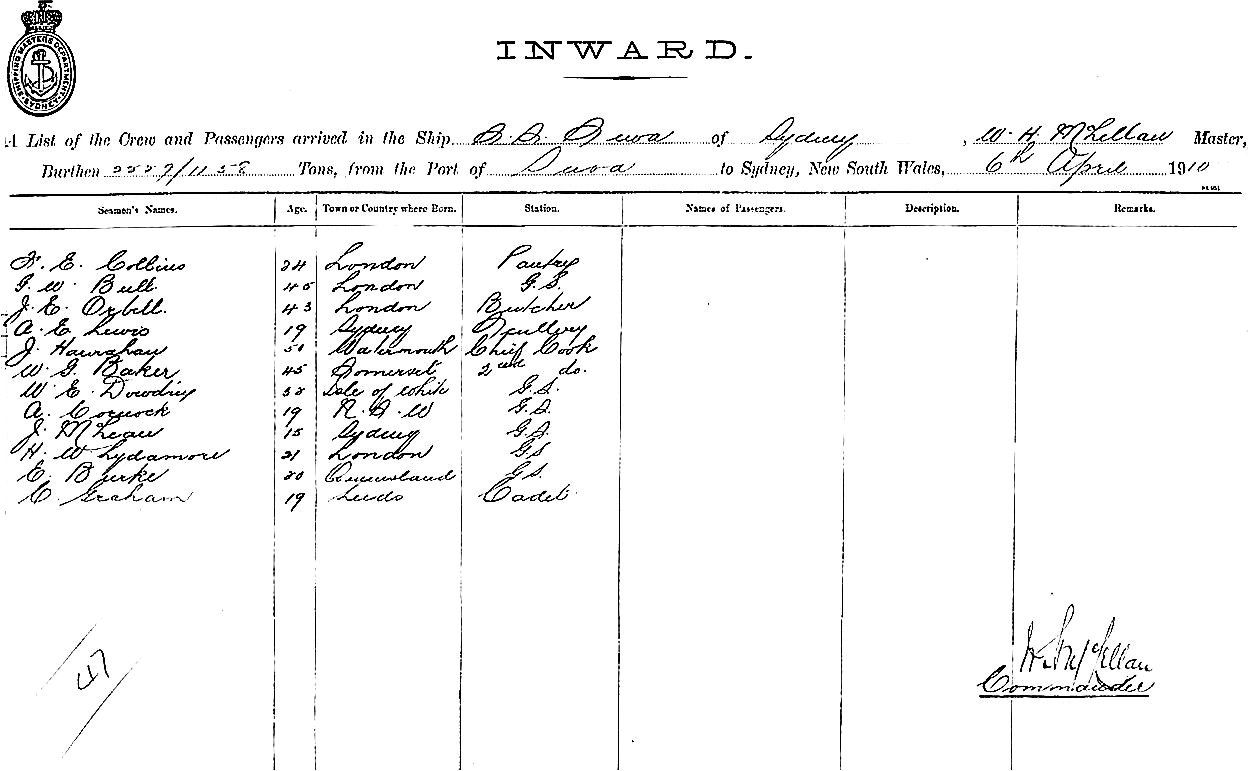 SHIPPING MASTERS DEPARTMENT. SYDNEY
INWARD.
A List of the Crew and Passengers arrived in the Ship S.S. Suva of Sydney, W. H. McLellan Master,
Burthen 2229/1158 Tons, from the Port of Suva to Sydney, New South Wales, 6th April 1910
Seamen's Names. Age. Town or Country where Born. Station. Names of Passengers. Description. Remarks.
F. E. Collins 24 London Pantry
G. W. Bull 45 London G.S.
J. E. Orbell. 43 London Butcher
A. E. Lewis 19 Sydney Scullery
J. Hanrahan 50 Watermouth Chief Cook
W. G. Baker 45 Somerset 2nd do.
W. E. Isle of White G.S.
A. 19 N.S.W G.S.
J. McLean 15 Sydney G.S.
H. W. Lydamore 21 London G.S
E. Burke 20 Queensland G.S.
C. Graham 19 Leeds Cadet
47
McLellan
Commander